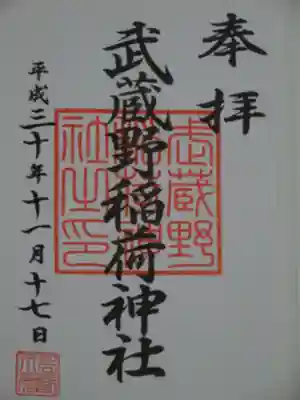 奉拝
武蔵野稲荷神社
平成三十年十一月十七日
武蔵野
社之印